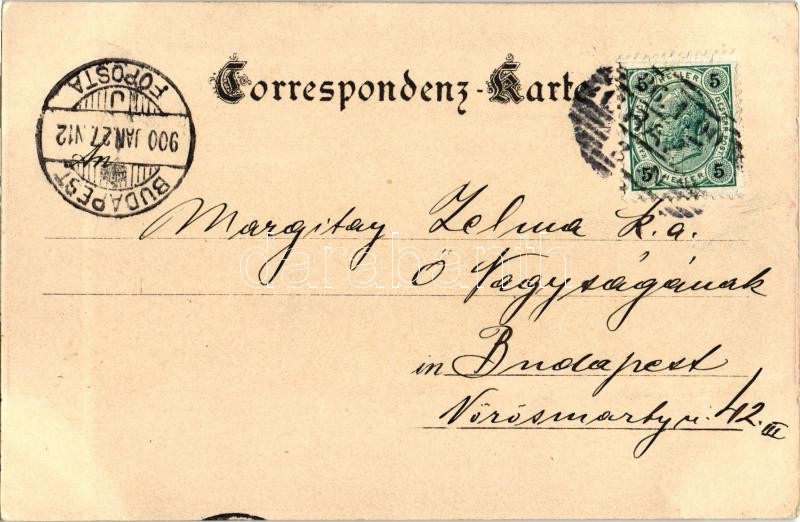 Correspondenz-Karte
BUDAPEST
FŐPOSTA
900 JAN. 27. N12
5 HELLER 5
5 HELLER 5
Margitay Zelma k.a.
Ő Nagyságának
in Budapest
Vörösmarty u. 42. III
darabanth